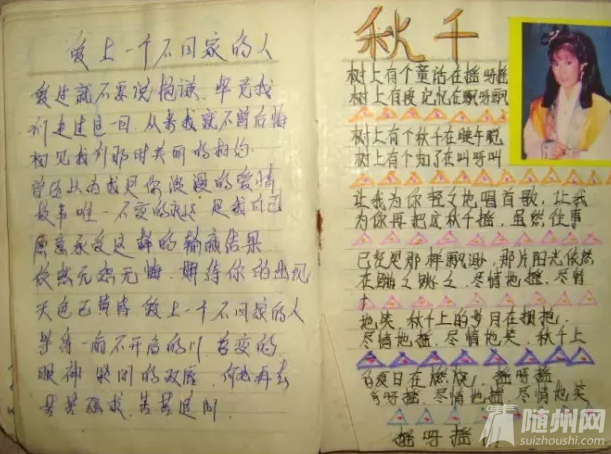 爱上一个不回家的人
爱过就不要说抱谦 毕竟我
们走过这一回 从来我就不曾后悔
初见我们那时 的相约
曾经以为我是你浪漫的爱情
故事唯一不变的永远 是我自己
愿意承受这样的输赢结果
依然无怨无悔 期待你的出现
天色已黄昏 爱上一个不回家的人
等待一扇不开启的门 善变的
眼神 紧闭的双唇 何必再去
苦苦强求 苦苦追问
秋千
树上有个童话在摇呀摇
树上有段记忆在飘呀飘
树上有个秋千在睡午觉
树上有个知了在叫呀叫
让我为你轻轻地唱首歌，让我
为你再把这秋千摇，虽然往事
已经是那样飘渺，那片阳光依然
在跳之跳之，尽情地摇，尽情
地笑 秋千上的岁月在拥抱
尽情地摇，尽情地笑，秋千上
的夏日在燃烧，摇呀摇
呀摇，尽情地摇，尽情地笑
摇呀摇
随州网
suizhoushi.com